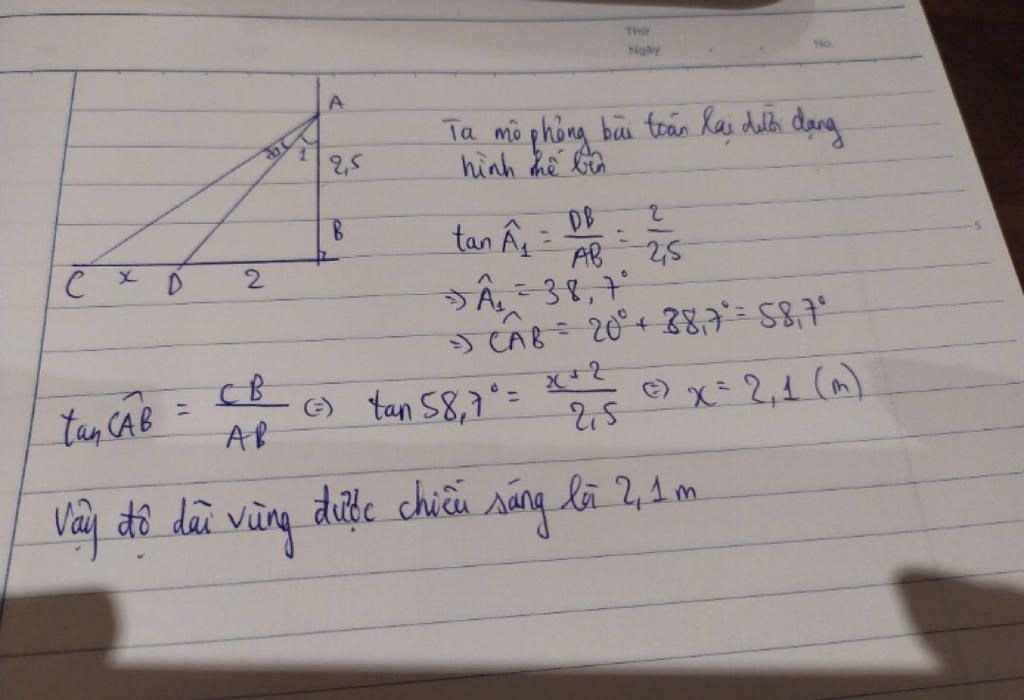 Thứ
Ngày . . No.
A
20° 1 2,5
B
C x D 2
Ta mô phỏng bài toán lại dưới dạng
hình như bên
tan Â₁ = DB/AB = 2/2,5
5
=> Â₁ = 38,7°
=> CÂB = 20° + 38,7° = 58,7°
tan CÂB = CB/AB (=) tan 58,7° = x+2/2,5 (=) x = 2,1 (m)
Vậy độ dài vùng được chiếu sáng là 2,1 m